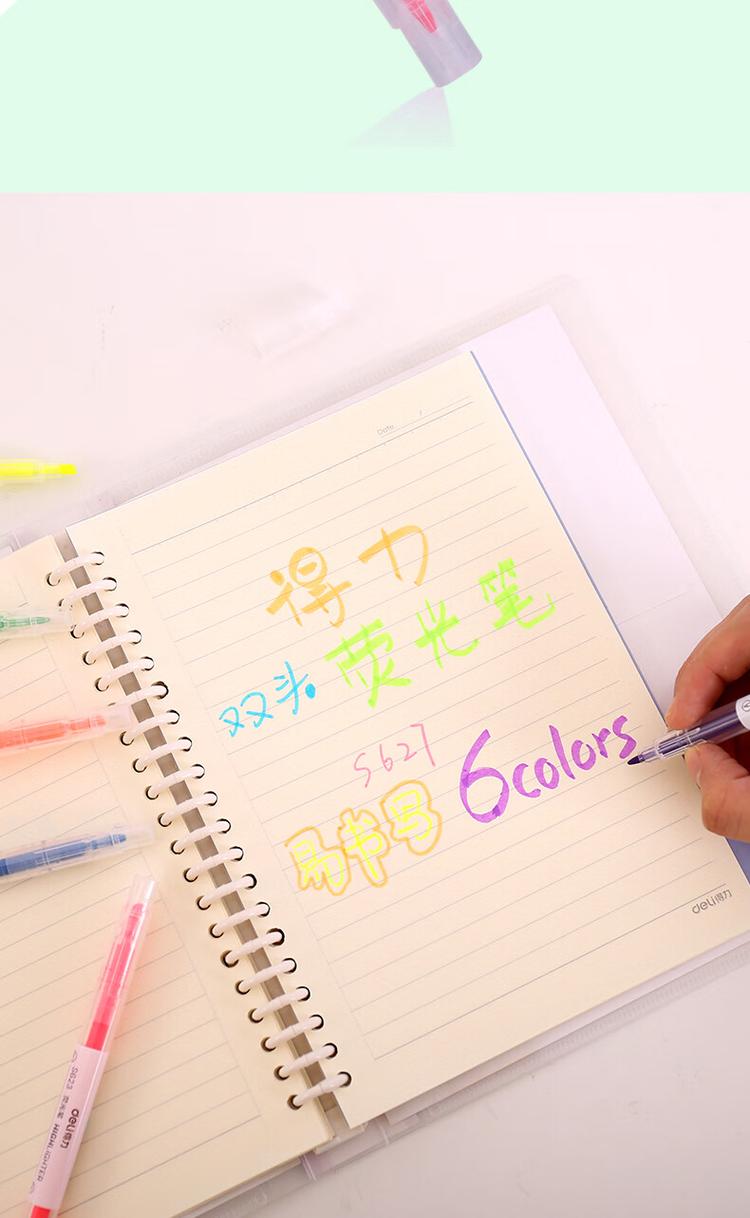 Date
得力
荧光笔
双头
S627
6colors
易书写
deli得力
S623 荧光笔 deli得力
HIGHLIGHTER